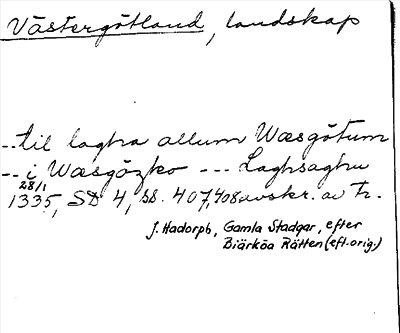 Västergötland, landskap
--til laghra allum Wæsgötum
-- i Wæsgözko --- Laghsaghu
28/1
1335, SD 4, ss. 407,408 avskr. av tr.
J. Hadorph, Gamla Stadgar, efter
Biärköa Rätten (eft. orig.)